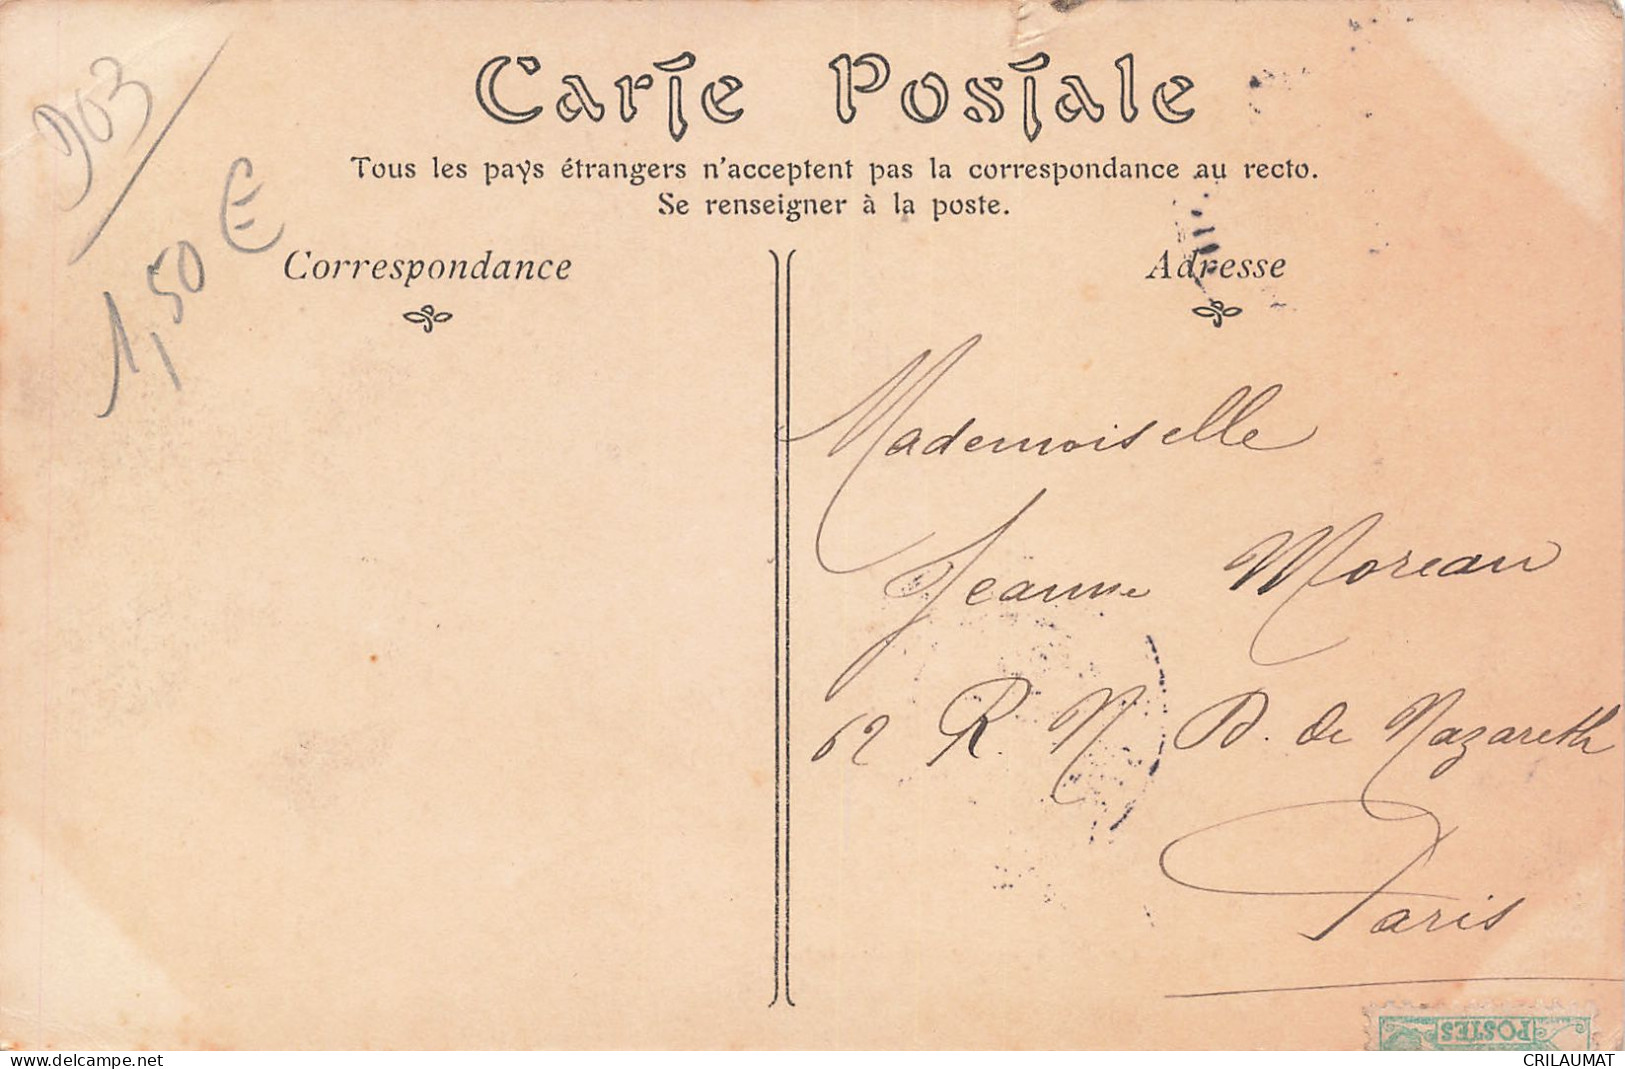 903
1,50 €
Carte Postale
Tous les pays étrangers n'acceptent pas la correspondance au recto.
Se renseigner à la poste.
Correspondance
Adresse
Mademoiselle
Jeanne Moreau
62 R. N D. de Nazareth
Paris
POSTES
www.delcampe.net
CRILAUMAT